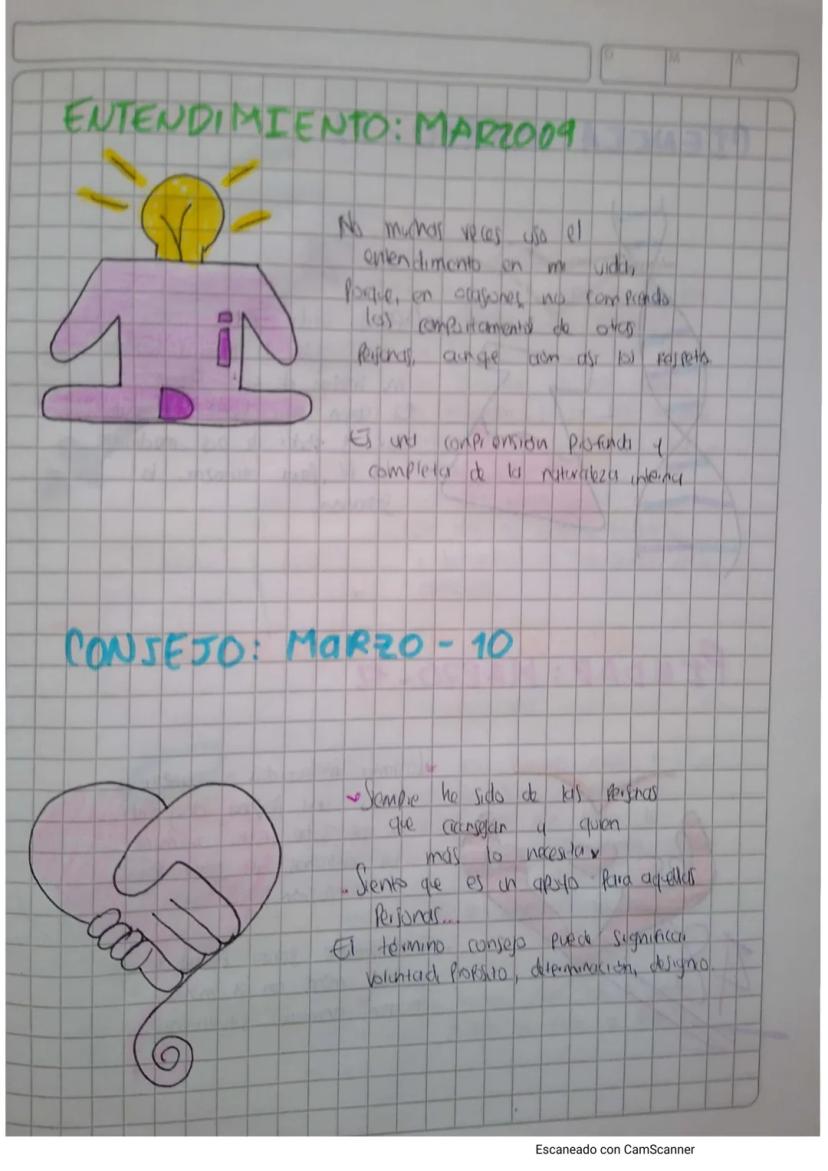 ENTENDIMIENTO: MARZO09
No muchas veces uso el
entendimento en mi vida,
Porque, en ocasiones no comprendo
los comportamiento de otras
Personas, aunque aun asi los respeto
Es una comprensión profunda y
completa de la naturaleza interna
CONSEJO: MARZO - 10
Siempre he sido de las Personas
que aconsejan a quien
más lo necesita
Siento que es un apoyo Para aquellas
Personas...
El término consejo puede significar
voluntad, Propósito, determinación, designo.
Escaneado con CamScanner